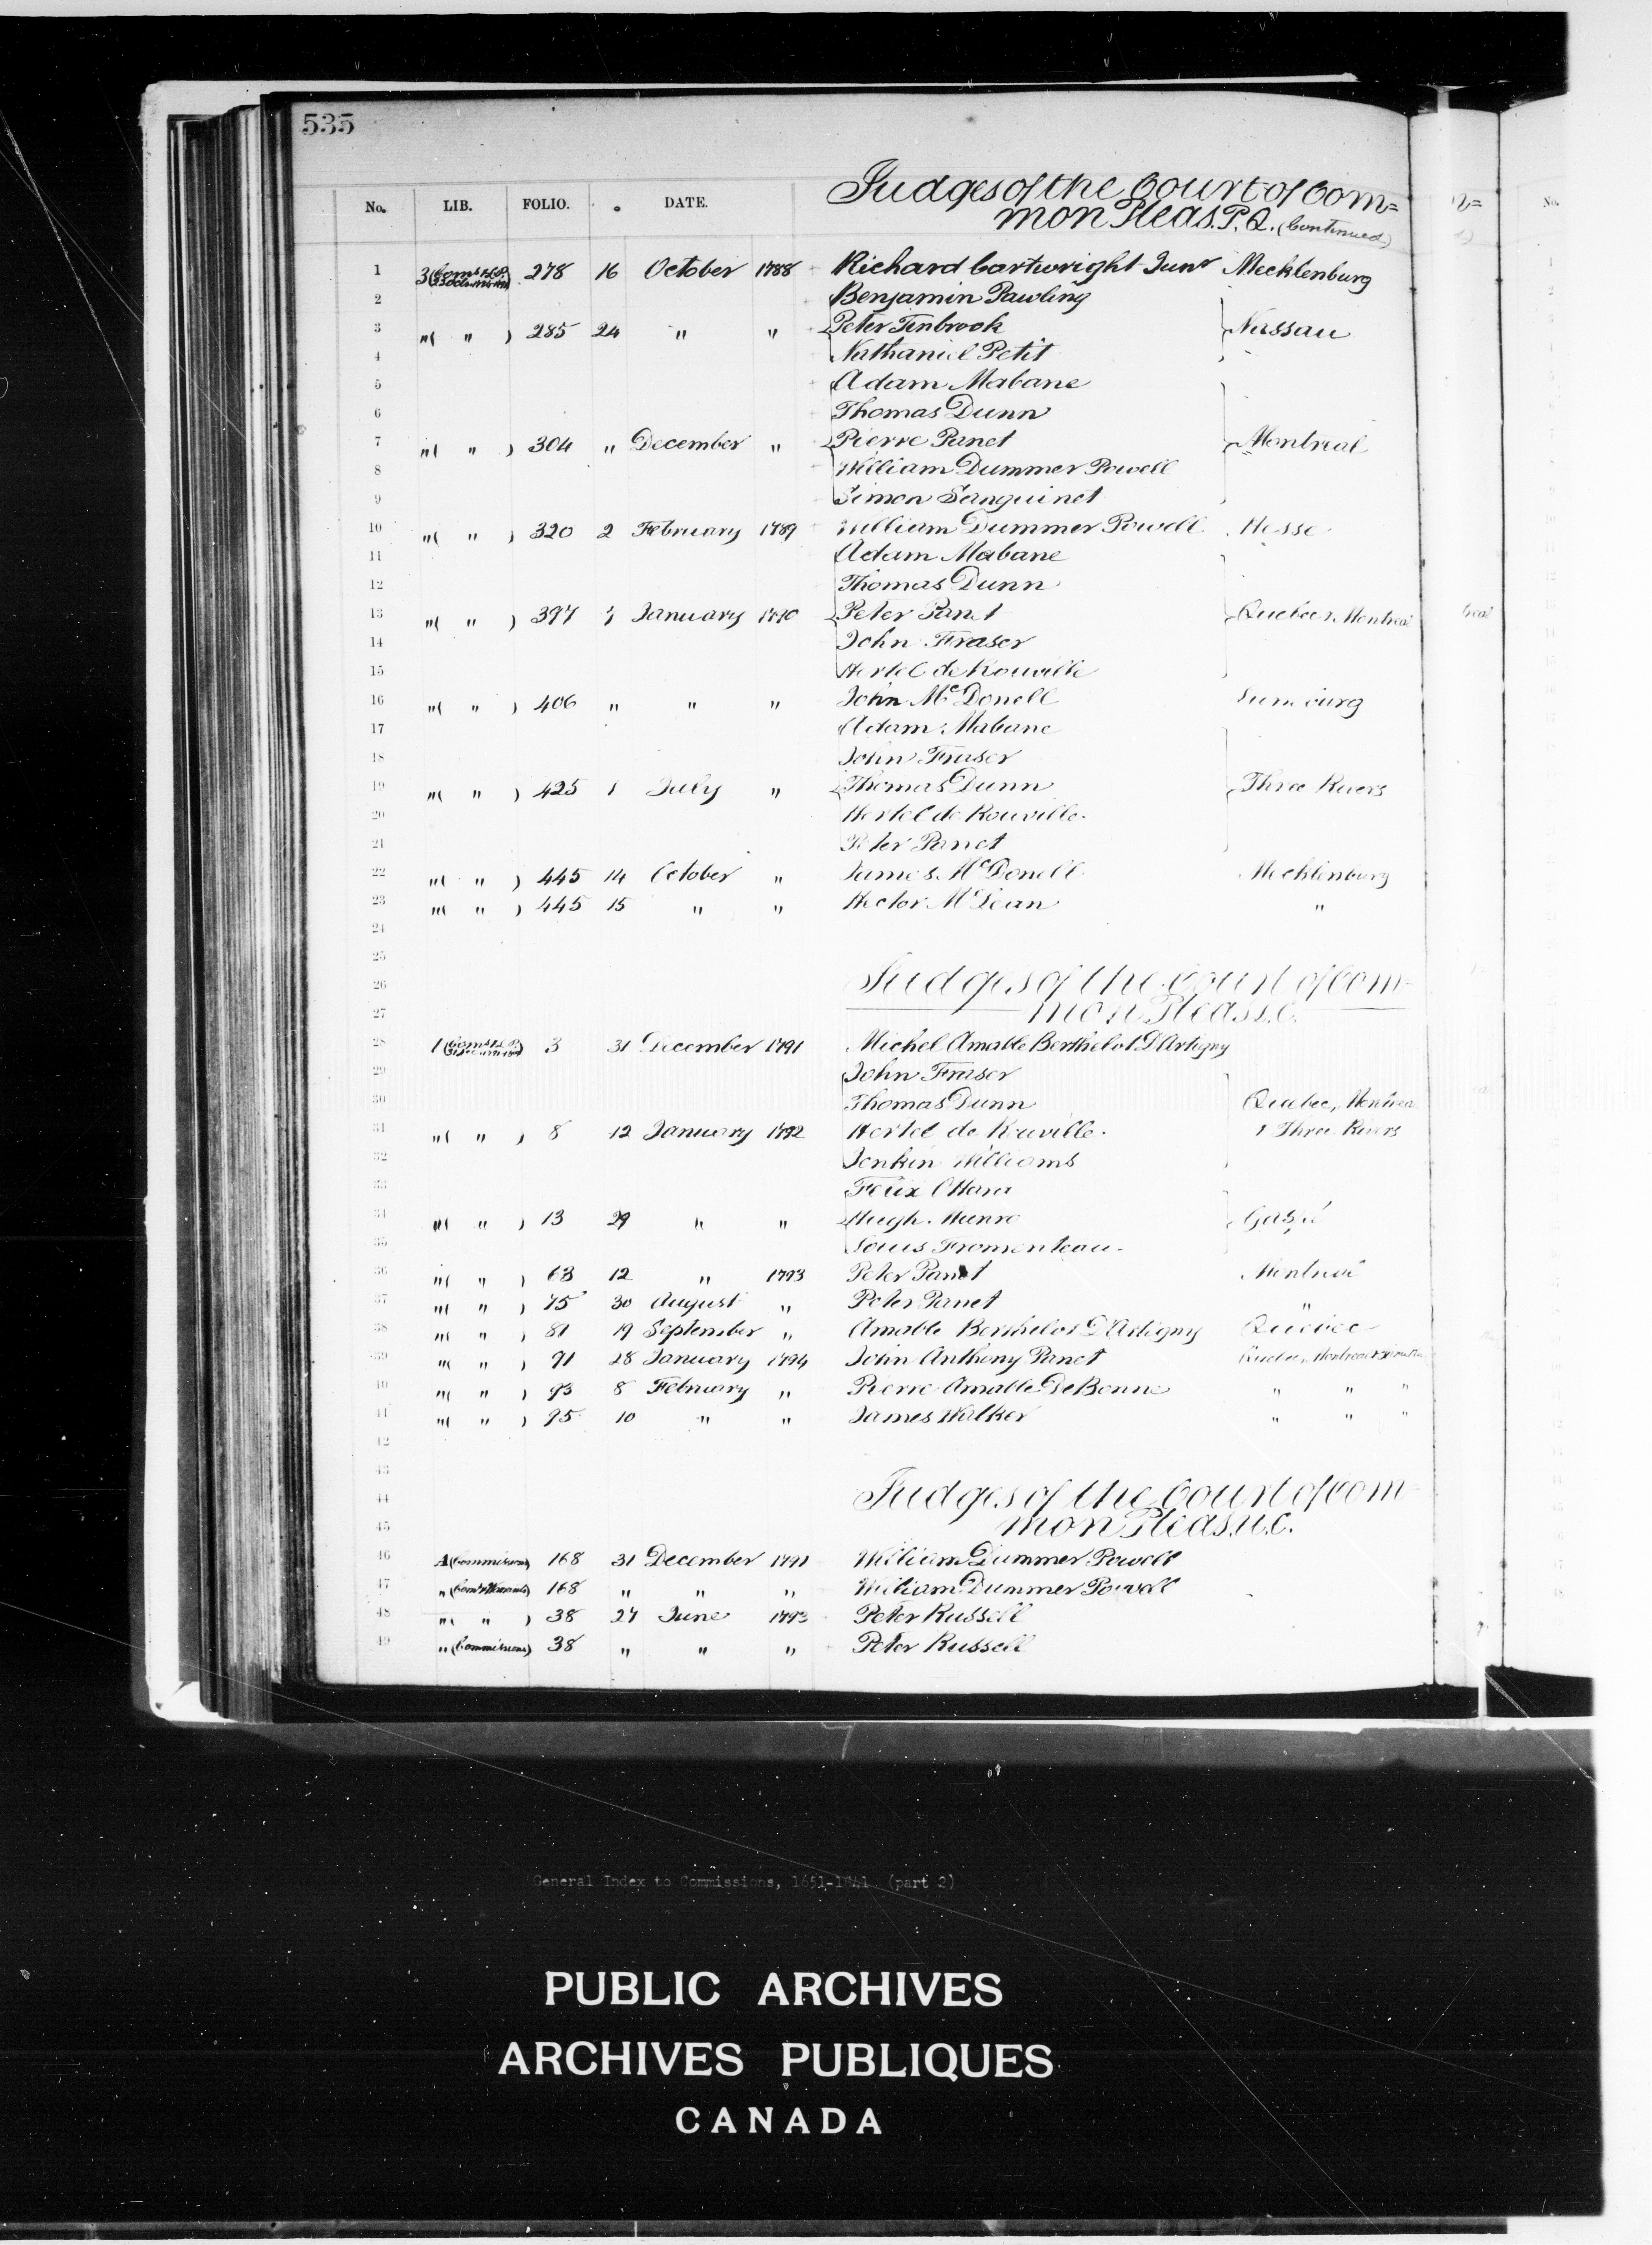 535
No. LIB. FOLIO. DATE. Judges of the Court of Com=
mon Pleas. P. Q. (Continued)
1 3 278 16 October 1788 Richard Cartwright Junr Mecklenburg
2 Benjamin Pawling
3 "( " ) 285 24 " " Peter Tenbrook Nassau
4 Nathaniel Petit
5 Adam Mabane
6 Thomas Dunn
7 "( " ) 304 " December " Pierre Panet Montreal
8 William Dummer Powell
9 Simon Sanguinet
10 "( " ) 320 2 February 1789 William Dummer Powell Hesse
11 Adam Mabane
12 Thomas Dunn
13 "( " ) 397 January 1790 Peter Panet Quebec & Montreal
14 John Fraser
15 Hertel de Rouville
16 "( " ) 406 " " " John McDonell
17 Adam Mabane
18 John Fraser
19 "( " ) 425 1 July " Thomas Dunn Three Rivers
20 Hertel de Rouville.
21 Peter Panet
22 "( " ) 445 14 October " James McDonell Mecklenburg
23 "( " ) 445 15 " " Hector McLean "
24
25
26 Judges of the Court of Com=
27 mon Pleas. L.C.
28 1 3 31 December 1791 Michel Amable Berthelot D'Artigny
29 John Fraser
30 Thomas Dunn Quebec, Montreal
31 "( " ) 8 12 January 1792 Hertel de Rouville. & Three Rivers
32 Jenkin Williams
33 Felix OHara
34 "( " ) 13 29 " " Hugh Munro Gaspé
35 Louis Fromenteau.
36 "( " ) 63 12 " 1793 Peter Panet Montreal
37 "( " ) 75 30 August " Peter Panet "
38 "( " ) 81 19 September " Amable Berthelot D'Artigny Quebec
39 "( " ) 91 28 January 1794 John Anthony Panet Quebec, Montreal
40 "( " ) 93 8 February " Pierre Amable DeBonne " " "
41 "( " ) 95 10 " " James Walker " " "
42
43
44 Judges of the Court of Com=
45 mon Pleas. U.C.
46 A (Commissions) 168 31 December 1791 William Dummer Powell
47 " 168 " " " William Dummer Powell
48 "( " ) 38 27 June 1793 Peter Russell
49 " (Commissions) 38 " " " Peter Russell
General Index to Commissions, 1651-1841 (part 2)
PUBLIC ARCHIVES
ARCHIVES PUBLIQUES
CANADA